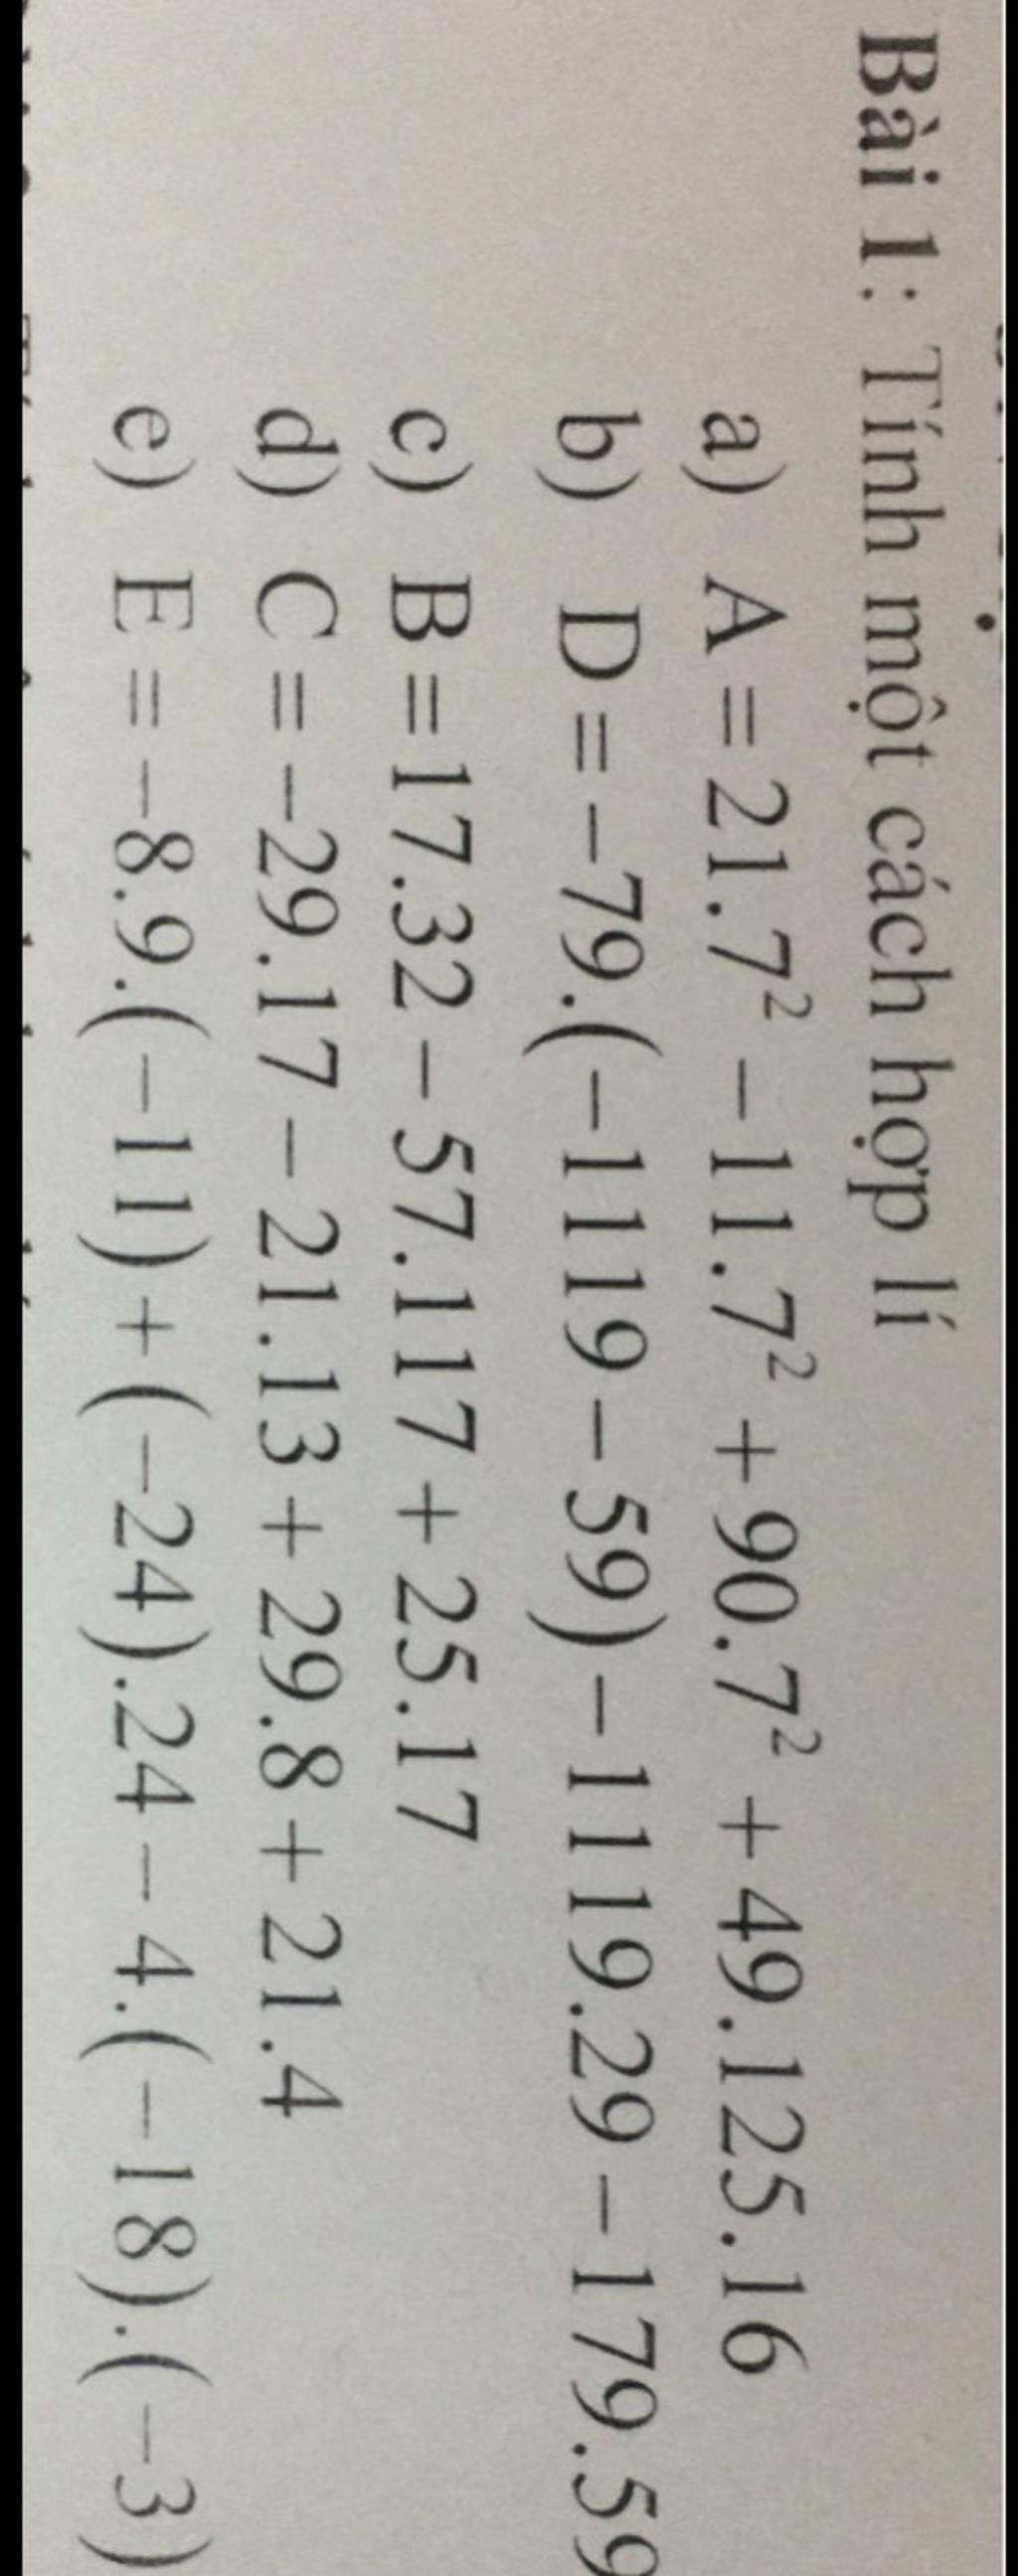 Bài 1: Tính một cách hợp lí
a) A = 21.7² − 11.7² + 90.7² + 49.125.16
b) D = −79.(−1119 − 59) − 1119.29 − 179.59
c) B = 17.32 − 57.117 + 25.17
d) C = −29.17 − 21.13 + 29.8 + 21.4
e) E = −8.9.(−11) + (−24).24 − 4.(−18).(−3)